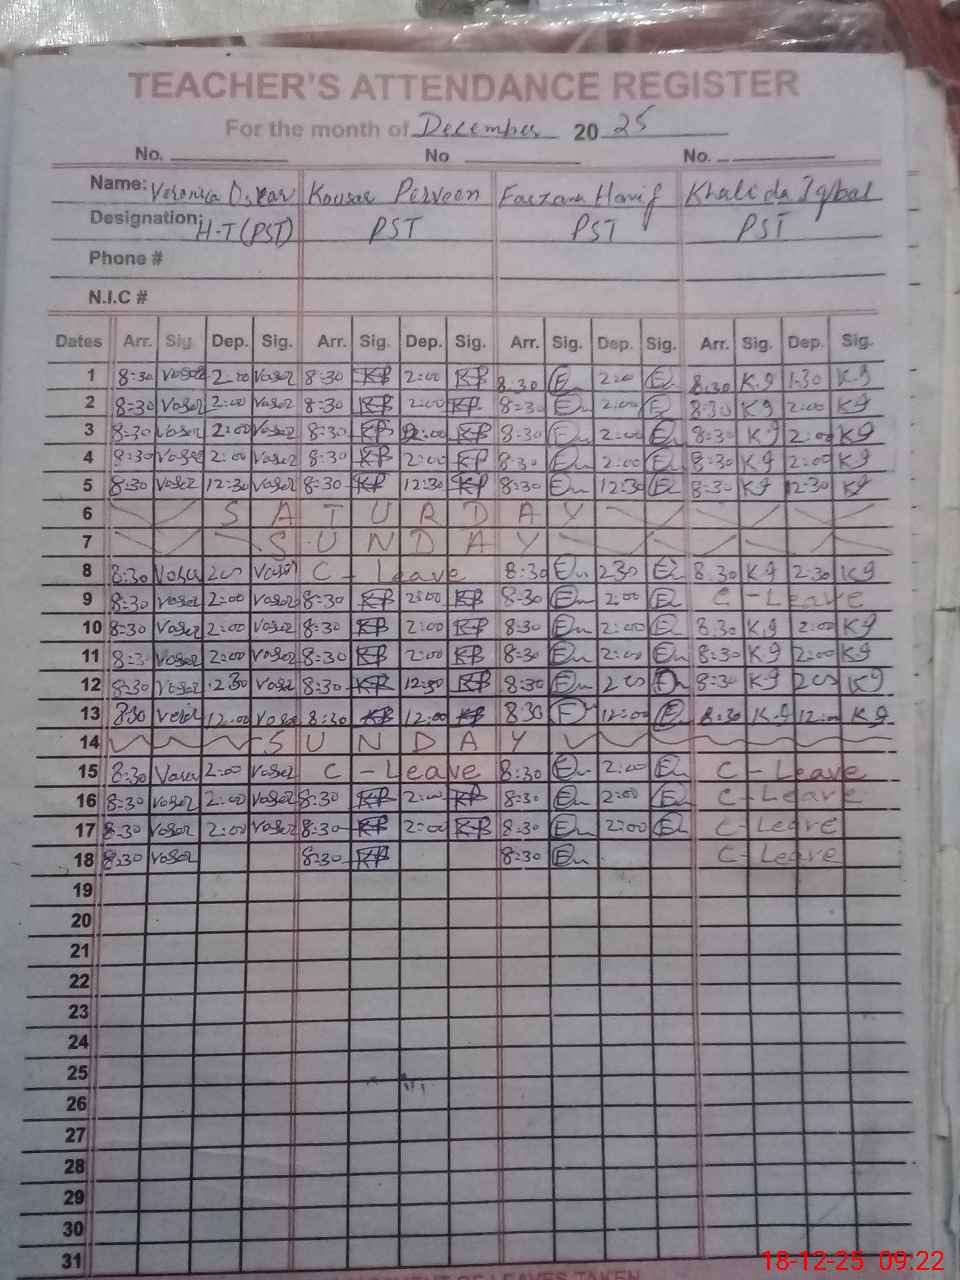 TEACHER'S ATTENDANCE REGISTER
For the month of December 20 25
No. No No.
Name: Veronica Oskar Kousar Perveen Farzana Hanif Khalida Iqbal
Designation: H-T (PST) PST PST PST
Phone #
N.I.C #
Dates Arr. Sig. Dep. Sig. Arr. Sig. Dep. Sig. Arr. Sig. Dep. Sig. Arr. Sig. Dep. Sig.
1 8:30 2:00 8:30 KP 2:00 KP 8:30 2:00 8:30 K.9 1:30 K-9
2 8:30 2:00 8:30 KP 2:00 KP 8:30 2:00 8:30 K9 2:00 K9
3 8:30 2:00 8:30 KP 2:00 KP 8:30 2:00 8:30 K9 2:00 K9
4 8:30 2:00 8:30 KP 2:00 KP 8:30 2:00 8:30 K9 2:00 K9
5 8:30 12:30 8:30 KP 12:30 KP 8:30 12:30 8:30 K9 12:30 K9
6 SATURDAY
7 SUNDAY
8 8:30 200 C - Leave 8:30 230 8:30 K9 2:30 K9
9 8:30 2:00 8:30 KP 2:00 KP 8:30 2:00 C - Leave
10 8:30 2:00 8:30 KP 2:00 KP 8:30 2:00 8:30 K.9 2:00 K9
11 8:30 2:00 8:30 KP 2:00 KP 8:30 2:00 8:30 K.9 2:00 K9
12 8:30 8:30 KP 12:30 KP 8:30 200 8:30 K9 200 K9
13 8:30 12:00 8:30 KP 12:00 KP 8:30 12:00 8:30 K.9 12:00 K9
14 SUNDAY
15 8:30 2:00 C - Leave 8:30 2:00 C - Leave
16 8:30 2:00 8:30 KP 2:00 KP 8:30 2:00 C - Leave
17 8:30 2:00 8:30 KP 2:00 KP 8:30 2:00 C - Leave
18 8:30 8:30 KP 8:30 C - Leave
19
20
21
22
23
24
25
26
27
28
29
30
31
18-12-25 09:22